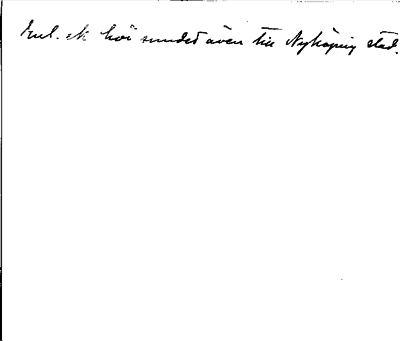 Enl. ek hör sundet även till Nyköping stad.